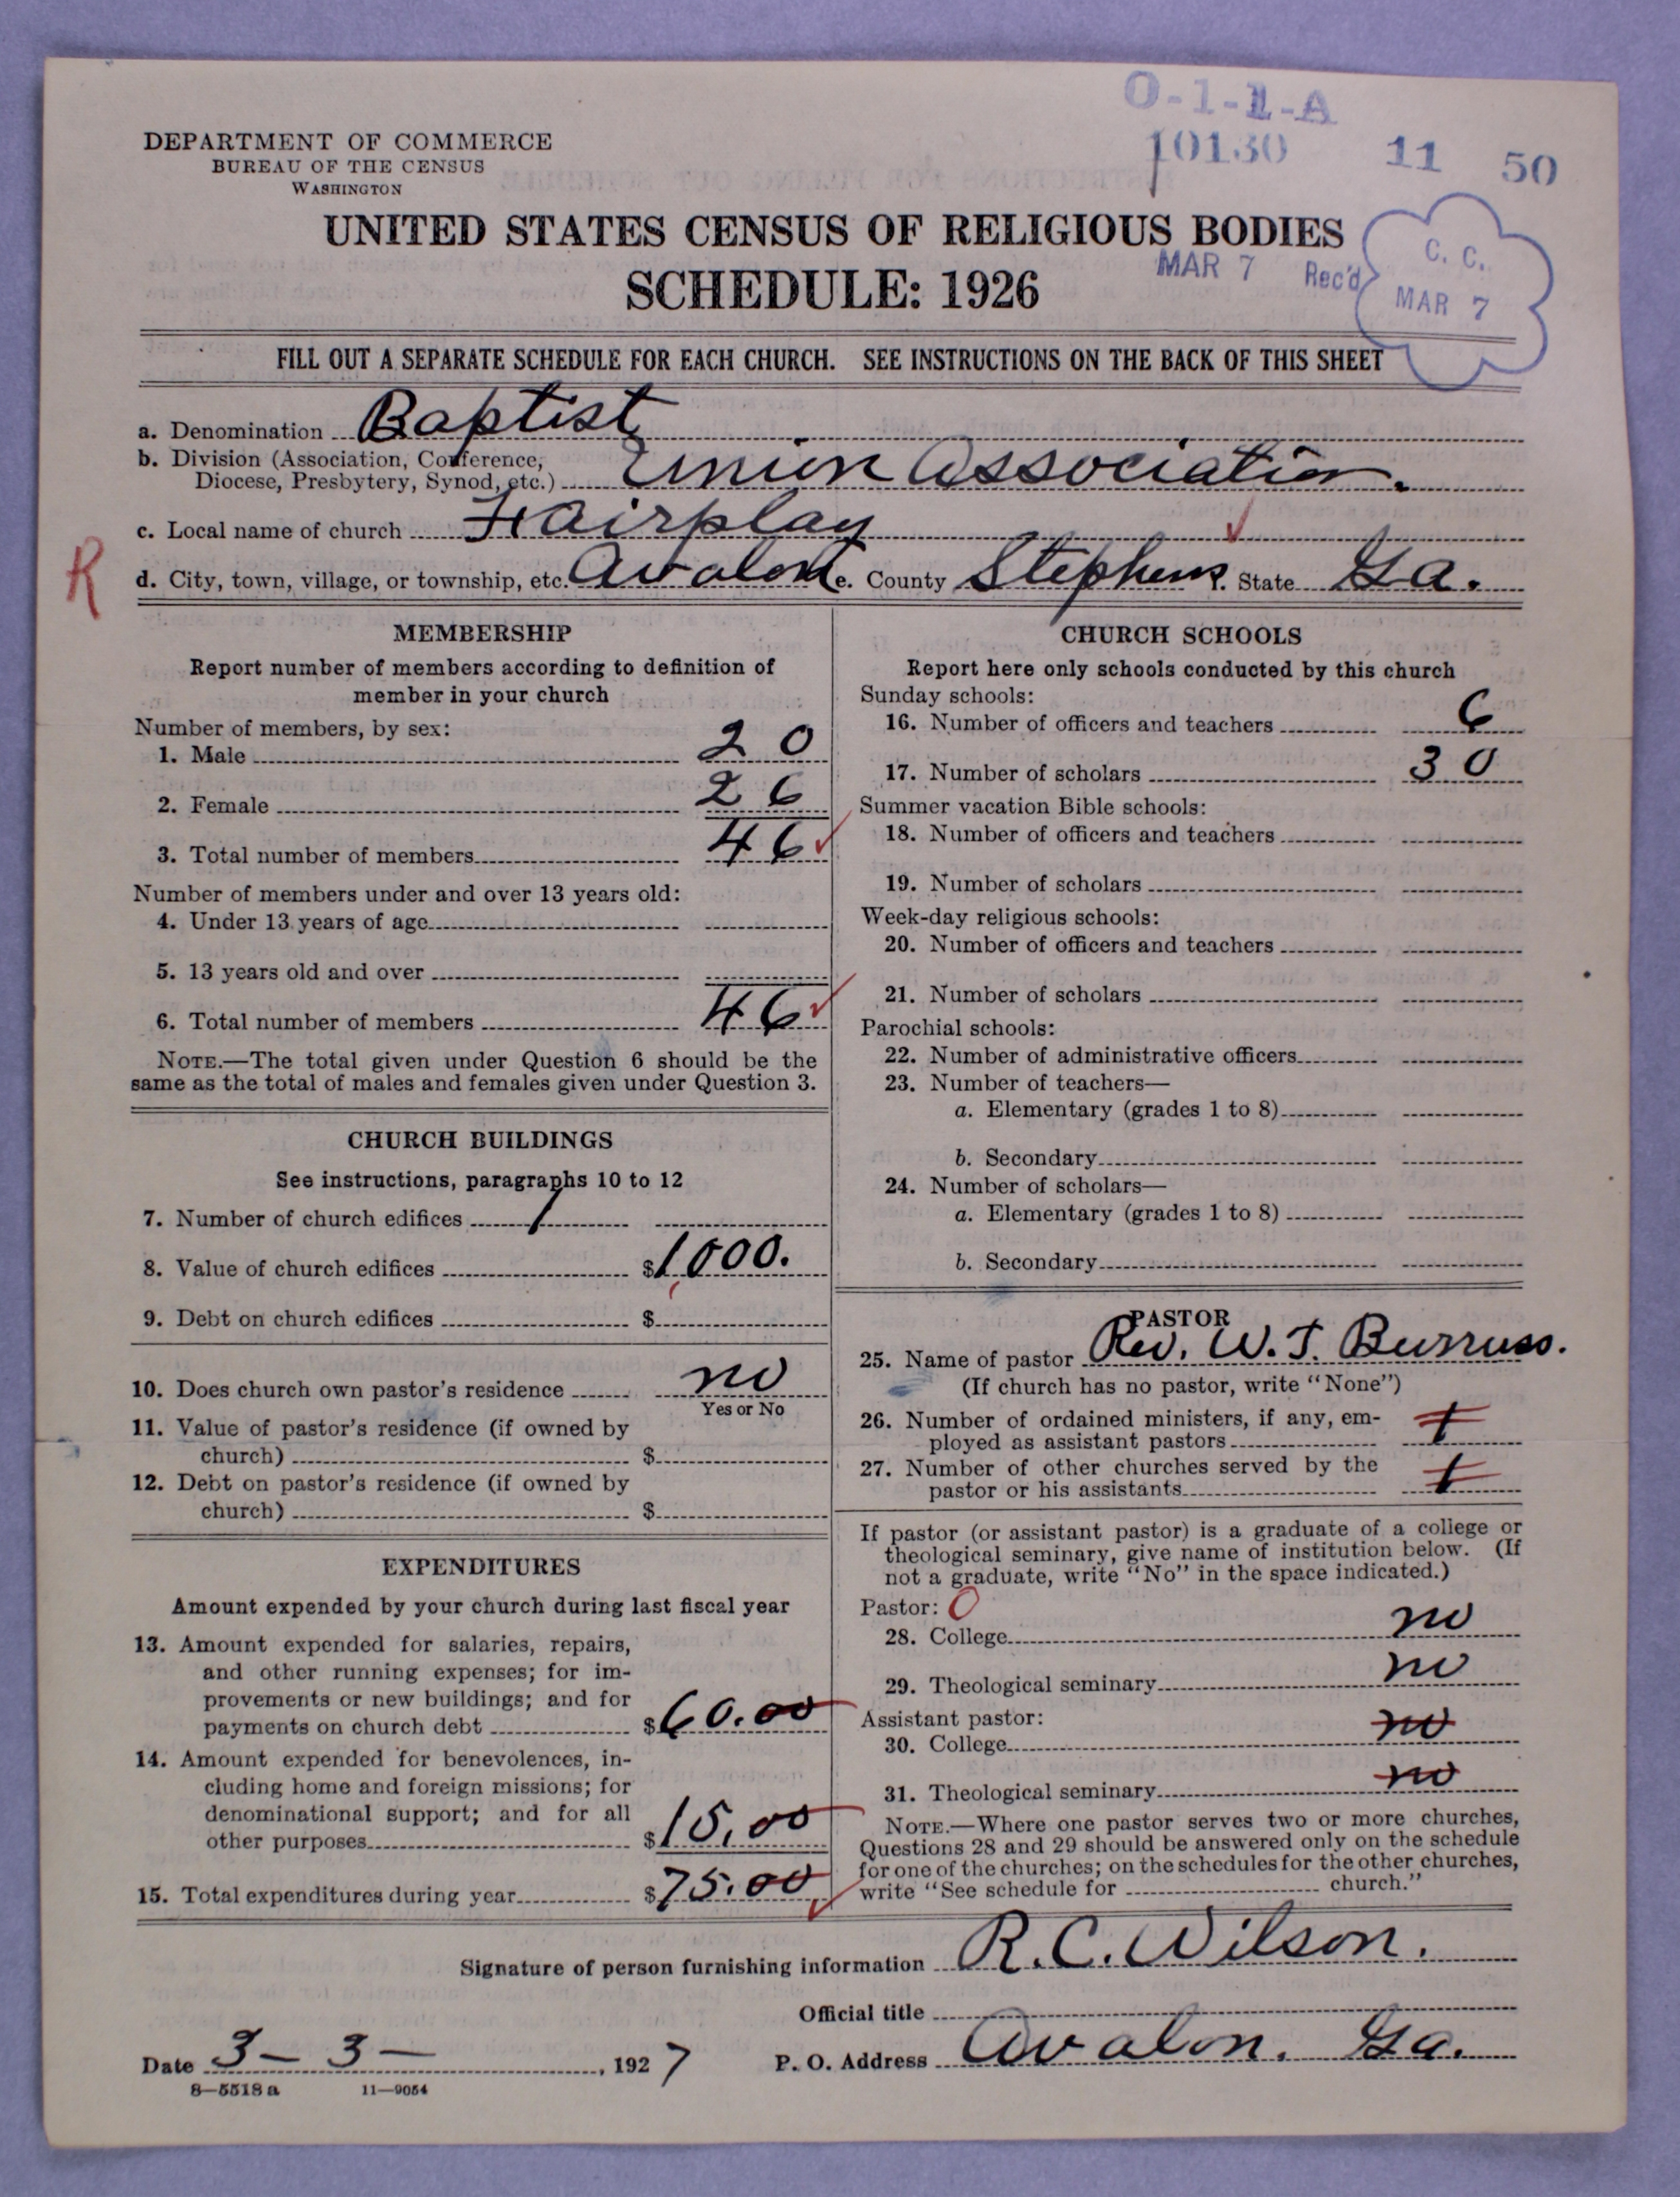 O-1-1-A
10130 11 50
DEPARTMENT OF COMMERCE
BUREAU OF THE CENSUS
WASHINGTON
UNITED STATES CENSUS OF RELIGIOUS BODIES
SCHEDULE: 1926
MAR 7 Rec'd
C. C.
MAR 7
FILL OUT A SEPARATE SCHEDULE FOR EACH CHURCH. SEE INSTRUCTIONS ON THE BACK OF THIS SHEET
a. Denomination Baptist
b. Division (Association, Conference,
Diocese, Presbytery, Synod, etc.) Union Association.
c. Local name of church Fairplay
R
d. City, town, village, or township, etc. Avalon e. County Stephens f. State Ga.
MEMBERSHIP
Report number of members according to definition of
member in your church
Number of members, by sex:
1. Male 20
2. Female 26
3. Total number of members 46
Number of members under and over 13 years old:
4. Under 13 years of age
5. 13 years old and over
6. Total number of members 46
NOTE.—The total given under Question 6 should be the
same as the total of males and females given under Question 3.
CHURCH BUILDINGS
See instructions, paragraphs 10 to 12
7. Number of church edifices 1
8. Value of church edifices $1,000.
9. Debt on church edifices $
10. Does church own pastor's residence no
Yes or No
11. Value of pastor's residence (if owned by
church) $
12. Debt on pastor's residence (if owned by
church) $
EXPENDITURES
Amount expended by your church during last fiscal year
13. Amount expended for salaries, repairs,
and other running expenses; for im-
provements or new buildings; and for
payments on church debt $60.00
14. Amount expended for benevolences, in-
cluding home and foreign missions; for
denominational support; and for all
other purposes $15.00
15. Total expenditures during year $75.00
CHURCH SCHOOLS
Report here only schools conducted by this church
Sunday schools:
16. Number of officers and teachers 6
17. Number of scholars 30
Summer vacation Bible schools:
18. Number of officers and teachers
19. Number of scholars
Week-day religious schools:
20. Number of officers and teachers
21. Number of scholars
Parochial schools:
22. Number of administrative officers
23. Number of teachers—
a. Elementary (grades 1 to 8)
b. Secondary
24. Number of scholars—
a. Elementary (grades 1 to 8)
b. Secondary
PASTOR
25. Name of pastor Rev. W. T. Burruss.
(If church has no pastor, write "None")
26. Number of ordained ministers, if any, em-
ployed as assistant pastors 1
27. Number of other churches served by the
pastor or his assistants 1
If pastor (or assistant pastor) is a graduate of a college or
theological seminary, give name of institution below. (If
not a graduate, write "No" in the space indicated.)
Pastor: 0
28. College no
29. Theological seminary no
Assistant pastor:
30. College no
31. Theological seminary no
NOTE.—Where one pastor serves two or more churches,
Questions 28 and 29 should be answered only on the schedule
for one of the churches; on the schedules for the other churches,
write "See schedule for church."
Signature of person furnishing information R. C. Wilson.
Official title
Date 3-3-, 1927 P. O. Address Avalon. Ga.
8—5518 a 11—9054